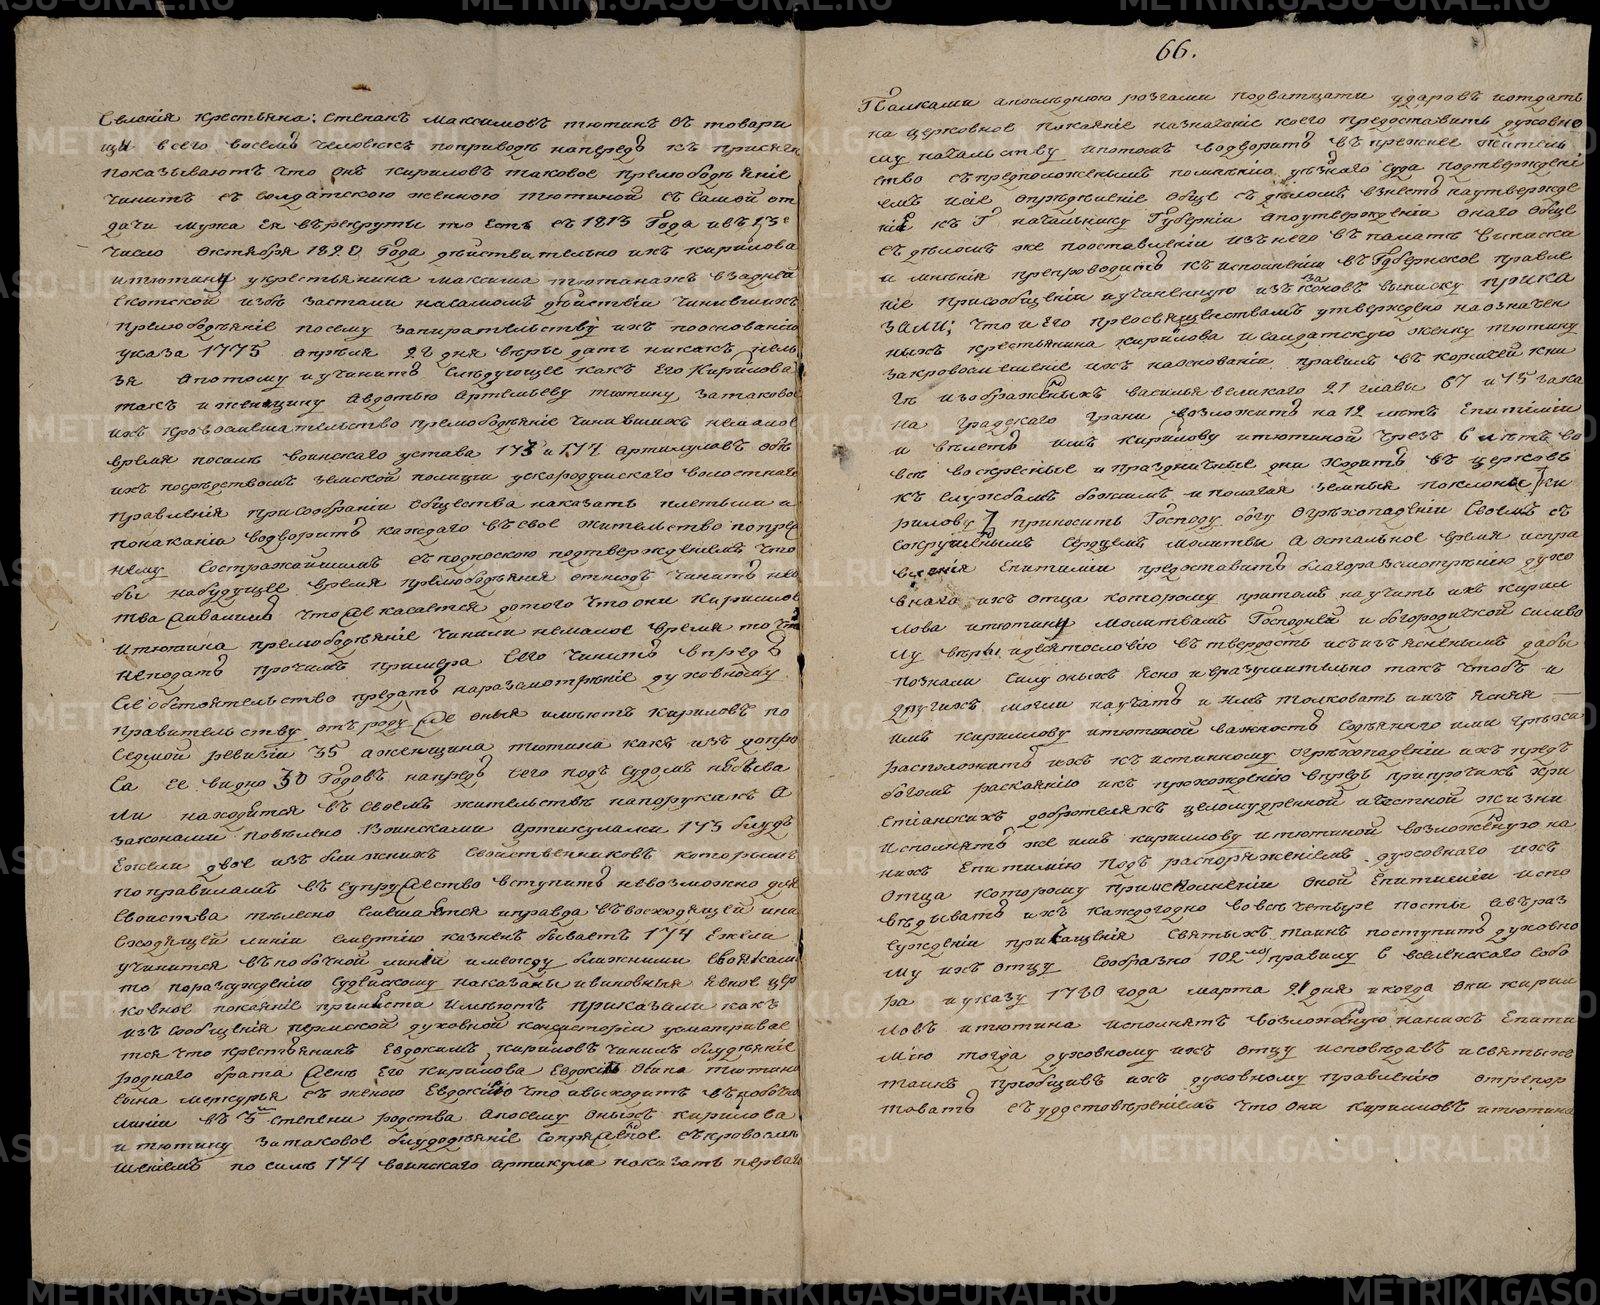 селенія крестьяна: степанъ максимовъ тютинъ съ товари
щи всего восемь человѣкъ поприводѣ напередъ къ присяги
показываютъ что онъ кириловъ таковое прелюбодѣяніе
чинитъ съ солдатскою женкою тютиной съ самой от
дачи мужа ея въ рекруты то есть съ 1813 года и въ 13е
число октября 1820 года дѣйствительно ихъ кирилова
и тютину у крестьянина максима тютина въ задней
скотской избѣ застали на самомъ дѣйствіи чинившихъ
прелюбодѣяніе посему запирательству ихъ пооснованію
указа 1775 апрѣля 28 дня вѣры дать никакъ нель
зя апотому и учинить слѣдующее какъ его Кирилова
такъ и женщину авдотью артемьеву тютину затаковое
ихъ кровосмешательство прелюбодѣяніе чинившихъ немалое
время посилѣ воинскаго устава 173 и 174 артикуловъ обѣ
ихъ посредствомъ земской полиции ускородумскаго волостнаго
правленія присобраніи общества наказать плетьми а
понаказаніи водворить каждаго въ свое жительство попре
нему сострожайшимъ съ подпискою подтвержденіемъ что
бы набудущее время прелюбодѣянія отнюдь чинить не
что же касается дотого что они кириловъ
и тютина прелюбодѣяніе чинили немалое время то что
неподать прочимъ примера сего чинить впредь
се обстоятельство предать наразсмотрѣніе духовному
правительству отъ роду же оныя имѣютъ кириловъ по
седмой ревизіи 35 аженщина тютина какъ изъ допро
са ее видно 30 годовъ напредь сего подъ судомъ небыва
ли находятся въ своемъ жительствѣ напорукахъ а
законами повелено воинскими артикулами 173 блудъ
ежели двое изъ ближнихъ свойственниковъ которымъ
поправиламъ въ супружество вступить невозможно для
свойства телесно смешаются иправда въ восходящей ина
сходящей линіи смертію казненъ бываетъ 174 ежели
учинится въ побочной линіи имежду ближними своякам
то поразсужденію судейскому наказаны ивиновныя явное цер
ковное покаяніе принести имѣютъ приказали какъ
изъ сообщенія пермской духовной консисторіи усматривае
тся что крестьянинъ евдокимъ кириловъ чинилъ блудѣяніе
роднаго брата жены его кирилова евдокіи осипа тютина
сына меркурья съ женою евдокіею что ивыходитъ въ побочной
линіи въ 5й степени родства апосему оныхъ кирилова
и тютину затаковое блудодѣяніе сопряженное съ кровосмѣ
шеніемъ по силѣ 174 воинскаго артикула показать перваго
66.
Палками апослѣднюю розгами подватцати ударовъ иотдать
на церковное покаяніе назначеніе коего предоставить духовно
му начальству ипотомъ водворить въ прежнее житель
ство съ предположенымъ помнению уѣзнаго суда подтвержденi
емъ исие опредѣленіе обще съ дѣломъ взнесть наутвержде
ніе къ Г начальнику Губерніи апоутвержденіи онаго обще
съ дѣломъ же поставленіи изъ него въ память выписки
и мнѣнія препроводить къ исполненію въ Губернское правле
ніе присообщеніи иучиненную изъ законовъ выписку прика
зали; что и его преосвященствомъ утверждено наозначен
ныхъ крестьянина кирилова исалдатскую женку тютину
закровосмешеніе ихъ наосновании правилъ въ кормчей кни
гѣ изображенныхъ василья великаго 21 главы 67 и 75 зако
на градского грани возложить на 12 лѣтъ епитиміи
и велеть имъ кирилову итютиной чрезъ 6 лѣтъ во
всѣ воскресные ипраздничные дни ходить въ церковь
къ службамъ божиимъ и полагая земныя поклоны ки
рилову приносить Господу богу огрѣхопаденіи своемъ съ
сокрушеннымъ сердцемъ молитвы а остальное время испра
вленія епитиміи предоставить благоразсмотрѣнію духо
внаго ихъ отца которому притомъ научить ихъ кирил
лова итютину молитвамъ Господней и богородичной симво
лу вѣры идесятословію въ твердость исъизъясненіемъ дабы
познали силу оныхъ ясно ивразумительно такъ чтобъ и
другихъ могли научать и имъ толковать иизъясняя —
имъ кириллову итютиной важность содѣянаго ими грѣха
расположить ихъ къ истинному огрѣхопаденіи ихъ предъ
богомъ раскаянію икъ прехожденію впредь припрочихъ хри
стіанскихъ добротеляхъ целомудренной ичестной жизни
исполнять же имъ кириллову итютиной возложенную на
нихъ епитимію подъ распоряженіемъ духовнаго ихъ
отца которому приисполненіи оной епитиміи испо
вѣдывать ихъ каждогодно вовсѣ четыре посты авъ раз
сужденіи приобщенія святыхъ таинъ поступить духовно
му ихъ отцу сообразно 102му правилу 6 вселенскаго собо
ра иуказу 1780 года марта 21 дня икогда они кирил
ловъ итютина исполнятъ возложенную нанихъ епити
мію тогда духовному ихъ отцу исповѣдавъ исвятыхъ
таинъ приобщивъ ихъ духовному правленію отрепор
товать съ удостовѣреніемъ что они кирилловъ итютина